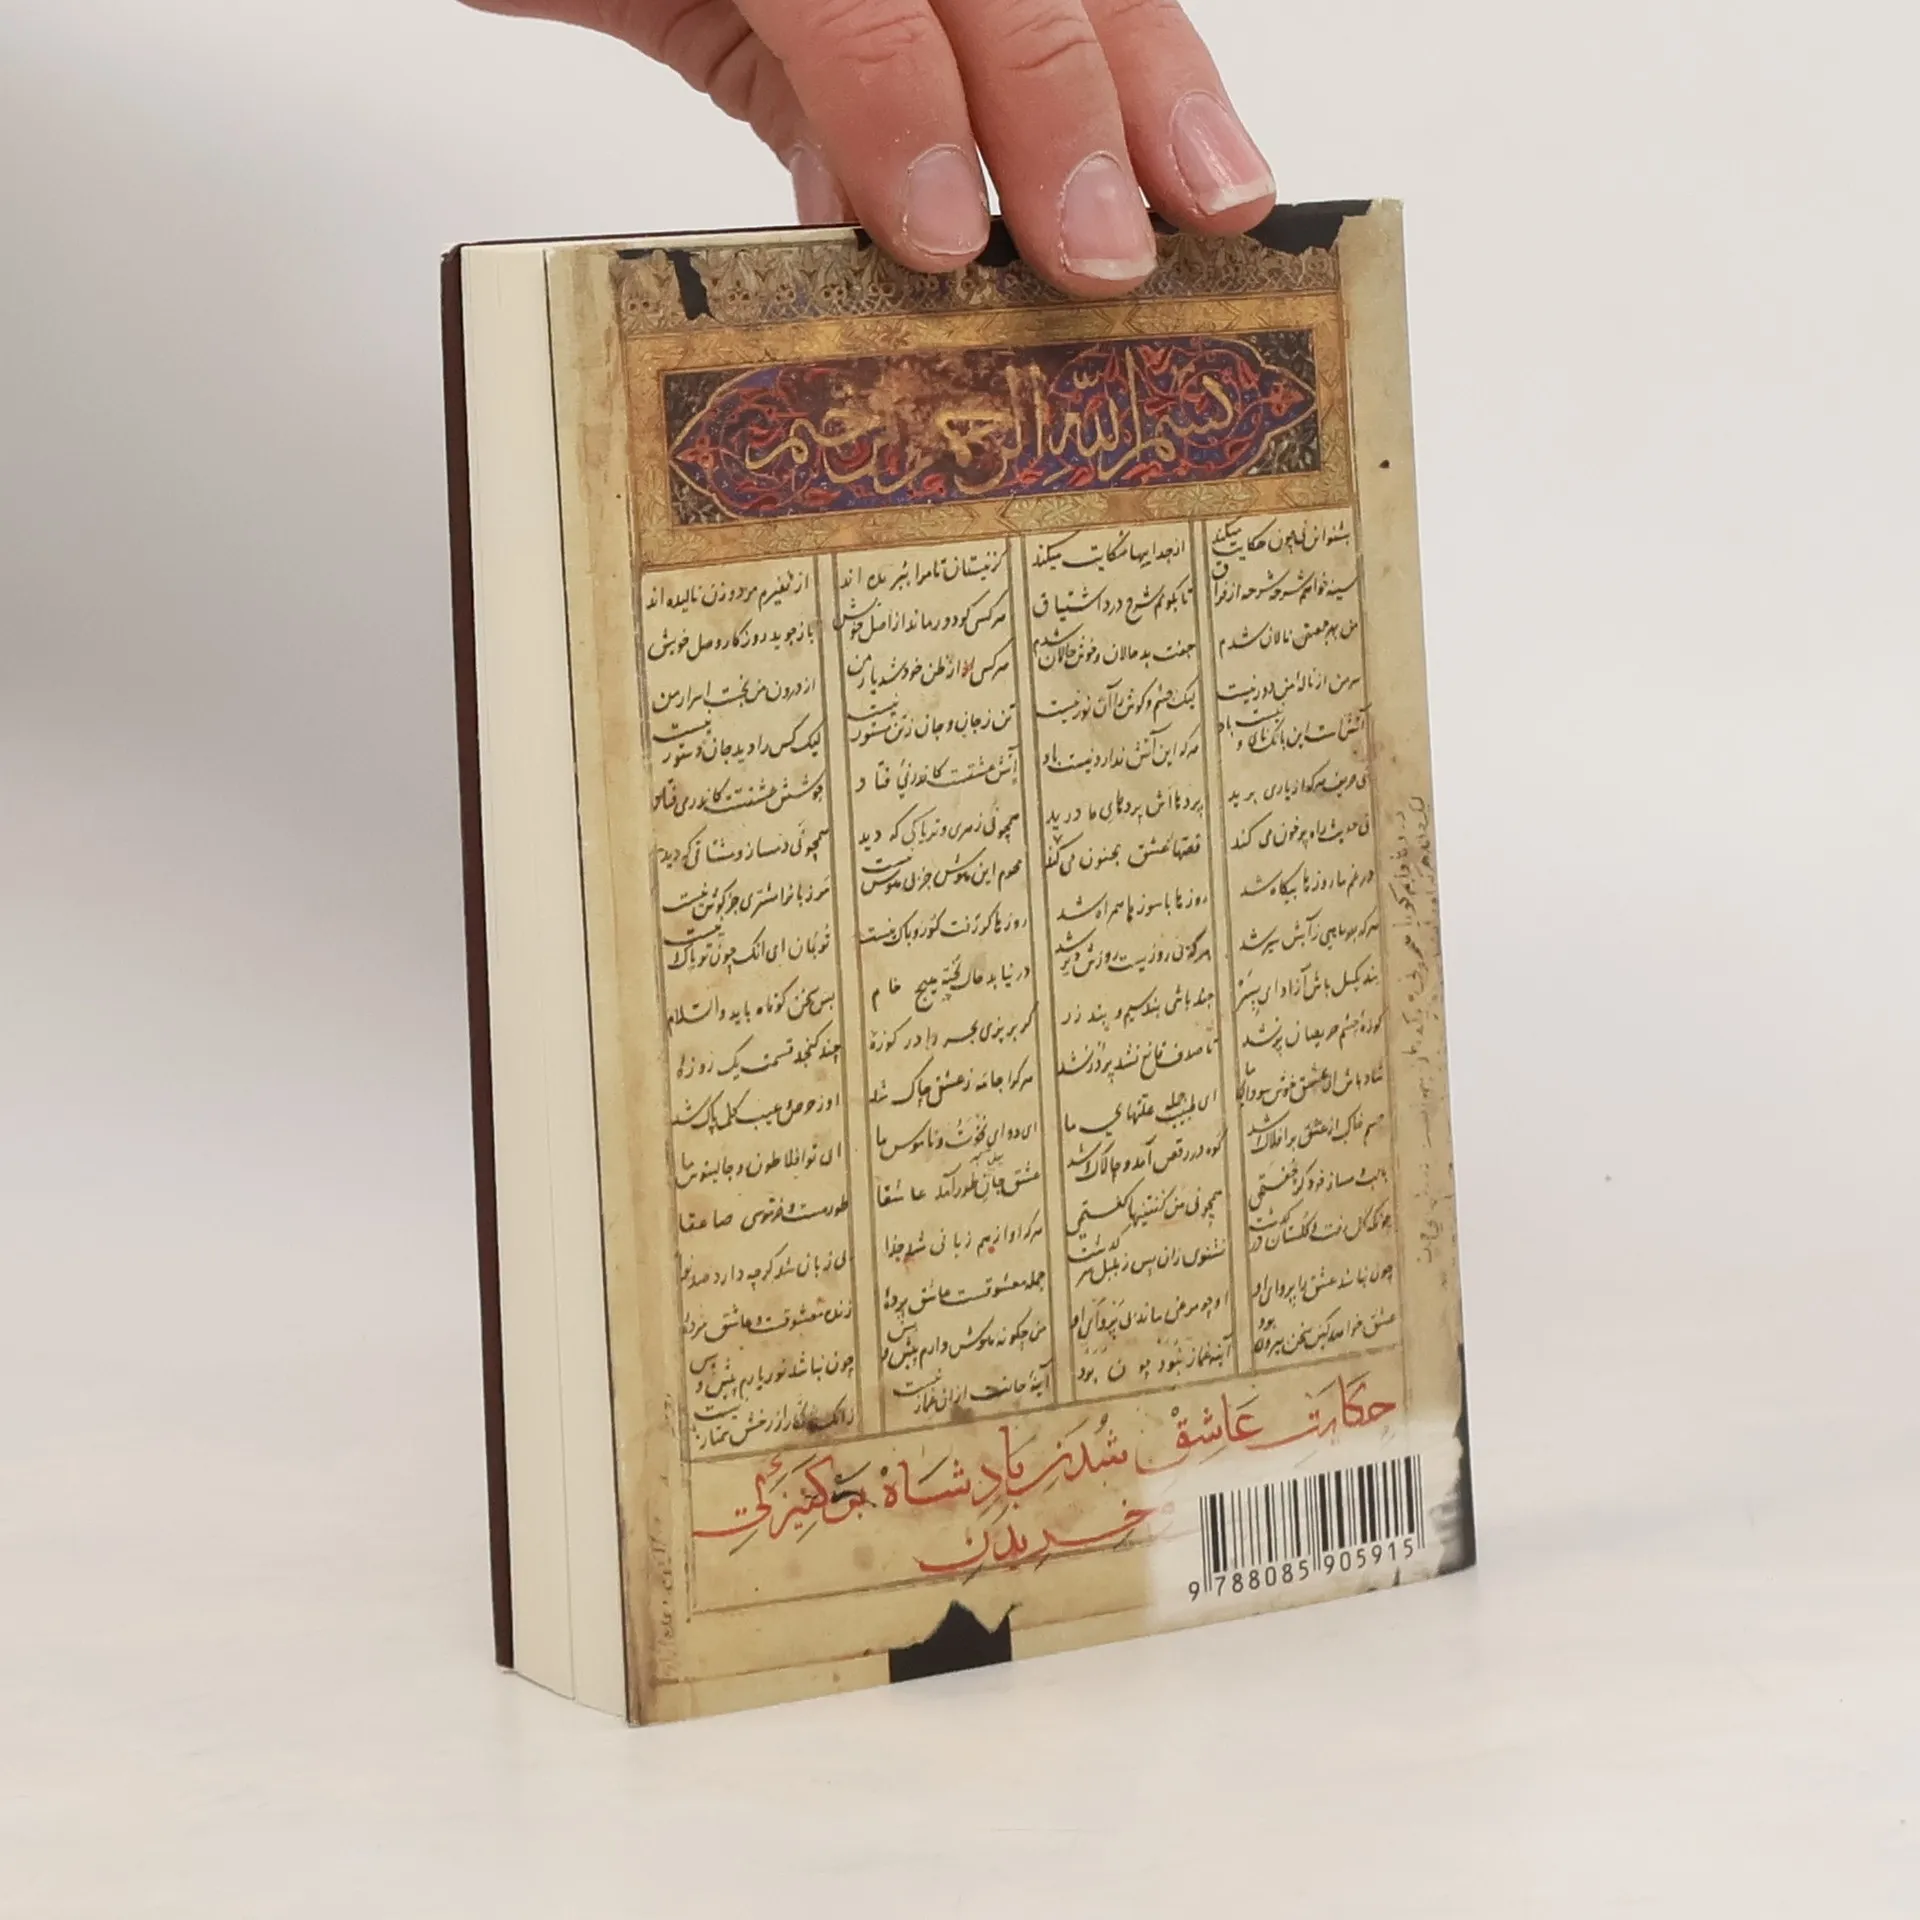 بسم الله الرحمن الرحیم
بشنو این نی چون حکایت میکند از جداییها شکایت میکند کز نیستان تا مرا ببریده اند از نفیرم مرد و زن نالیده اند
سینه خواهم شرحه شرحه از فراق تا بگویم شرح درد اشتیاق هر کسی کو دور ماند از اصل خویش باز جوید روزگار وصل خویش
من بهر جمعیتی نالان شدم جفت بدحالان و خوش حالان شدم هر کسی از ظن خود شد یار من از درون من نجست اسرار من
سر من از ناله من دور نیست لیک چشم و گوش را آن نور نیست تن ز جان و جان ز تن مستور نیست لیک کس را دید جان دستور نیست
آتش است این بانک نای و نیست باد هر که این آتش ندارد نیست باد آتش عشقست کاندر نی فتاد جوشش عشقست کاندر می فتاد
نی حریف هر که از یاری برید پردهااش پردهای ما درید همچو نی زهری و تریاکی که دید همچو نی دمساز و مشتاقی که دید
نی حدیث راه پر خون می کند قصهای عشق مجنون می کند محرم این هوش جز بی هوش نیست مر زبانرا مشتری جز گوش نیست
در غم ما روزها بیگاه شد روزها با سوزها همراه شد روزها گر رفت گو رو باک نیست تو بمان ای انک چون تو پاک نیست
هر که جز ماهی ز آبش سیر شد هر که بی روزیست روزش دیر شد در نیابد حال پخته هیچ خام پس سخن کوتاه باید والسلام
بند بگسل باش آزاد ای پسر چند باشی بند سیم و بند زر گر بریزی بحر را در کوزه چند گنجد قسمت یک روزه
کوزه چشم حریصان پر نشد تا صدف قانع نشد پر در نشد هر کرا جامه ز عشقی چاک شد او ز حرص و عیب کلی پاک شد
شاد باش ای عشق خوش سودای ما ای طبیب جمله علتهای ما ای دوای نخوت و ناموس ما ای تو افلاطون و جالینوس ما
جسم خاک از عشق بر افلاک شد کوه در رقص آمد و چالاک شد عشق جان طور آمد عاشقا طور مست و خر موسی صاعقا
با لب دمساز خود گر جفتمی همچو نی من گفتنیها گفتمی هر که او از هم زبانی شد جدا بی زبان شد گرچه دارد صد نوا
چونکه گل رفت و گلستان در گذشت نشنوی زان پس ز بلبل سر گذشت جمله معشوقست و عاشق پرده زنده معشوقست و عاشق مرده
چون نباشد عشق را پروای او او چو مرغی ماند بی پر وای او من چگونه هوش دارم پیش و پس چون نباشد نور یارم پیش و پس
عشق خواهد کین سخن بیرون بود آینه غماز نبود چون بود آینه جانت از ان غماز نیست زانک زنگار از رخش ممتاز نیست
حکایت عاشق شدن پادشاه بر کنیزکی
خریدن
9 788085 905915